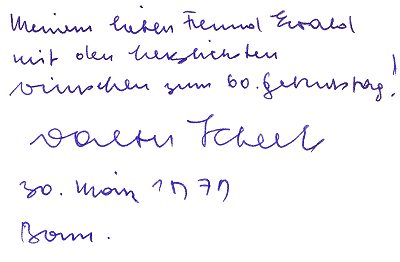 Meinem lieben Freund Ewald
mit den herzlichsten
Wünschen zum 60. Geburtstag!
Walter Scheel
30. März 1979
Bonn.